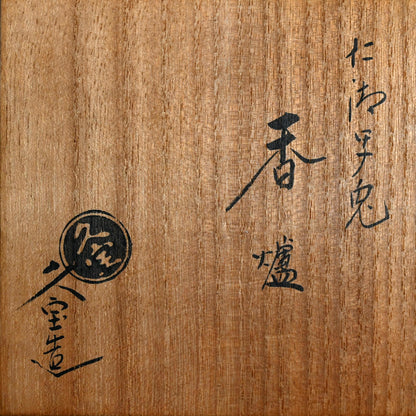 仁清写兎
香爐
久宝造